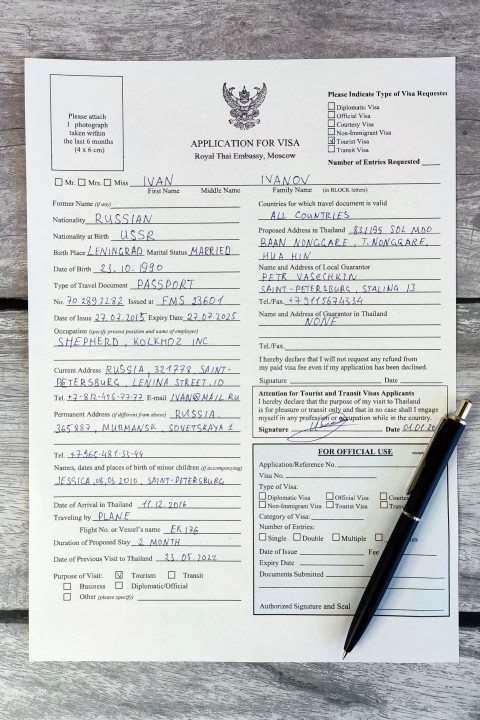 Please attach
1 photograph
taken within
the last 6 months
(4 x 6 cm)
APPLICATION FOR VISA
Royal Thai Embassy, Moscow
Please Indicate Type of Visa Requested
Diplomatic Visa
Official Visa
Courtesy Visa
Non-Immigrant Visa
Tourist Visa
Transit Visa
Number of Entries Requested
Mr. Mrs. Miss IVAN IVANOV
First Name Middle Name Family Name (in BLOCK letters)
Former Name (if any)
Nationality RUSSIAN
Nationality at Birth USSR
Birth Place LENINGRAD Marital Status MARRIED
Date of Birth 23.10.1990
Type of Travel Document PASSPORT
No. 70 2893282 Issued at FMS 23601
Date of Issue 27.07.2015 Expiry Date 27.07.2025
Occupation (specify present position and name of employer)
SHEPHERD, KOLKHOZ INC.
Current Address RUSSIA, 321778, SAINT-
PETERSBURG, LENINA STREET, 10
Tel. +7-812-416-77-77 E-mail IVAN@MAIL.RU
Permanent Address (if different from above) RUSSIA,
365887, MURMANSK, SOVETSKAYA 1
Tel. +7-965-481-33-44
Names, dates and places of birth of minor children (if accompanying)
JESSICA, 08,05.2010, SAINT-PETERSBURG
Date of Arrival in Thailand 11.12.2016
Traveling by PLANE
Flight No. or Vessel's name EK 176
Duration of Proposed Stay 2 MONTH
Date of Previous Visit to Thailand 23.05.2022
Purpose of Visit: Tourism Transit
Business Diplomatic/Official
Other (please specify)
Countries for which travel document is valid
ALL COUNTRIES
Proposed Address in Thailand 83/195 SOL MOO
BAAN NONGGARE, T.NONGGARE,
HUA HIN
Name and Address of Local Guarantor
PETR VASECHKIN
SAINT-PETERSBURG, STALINA 13
Tel./Fax. +79115674334
Name and Address of Guarantor in Thailand
NONE
Tel./Fax.
I hereby declare that I will not request any refund from
my paid visa fee even if my application has been declined.
Signature Date
Attention for Tourist and Transit Visas Applicants
I hereby declare that the purpose of my visit to Thailand
is for pleasure or transit only and that in no case shall I engage
myself in any profession or occupation while in the country.
Signature Date 01.01.20
FOR OFFICIAL USE
Application/Reference No.
Visa No.
Type of Visa:
Diplomatic Visa Official Visa
Non-Immigrant Visa Tourist Visa
Category of Visa:
Number of Entries:
Single Double Multiple
Date of Issue Fee
Expiry Date
Documents Submitted
Authorized Signature and Seal